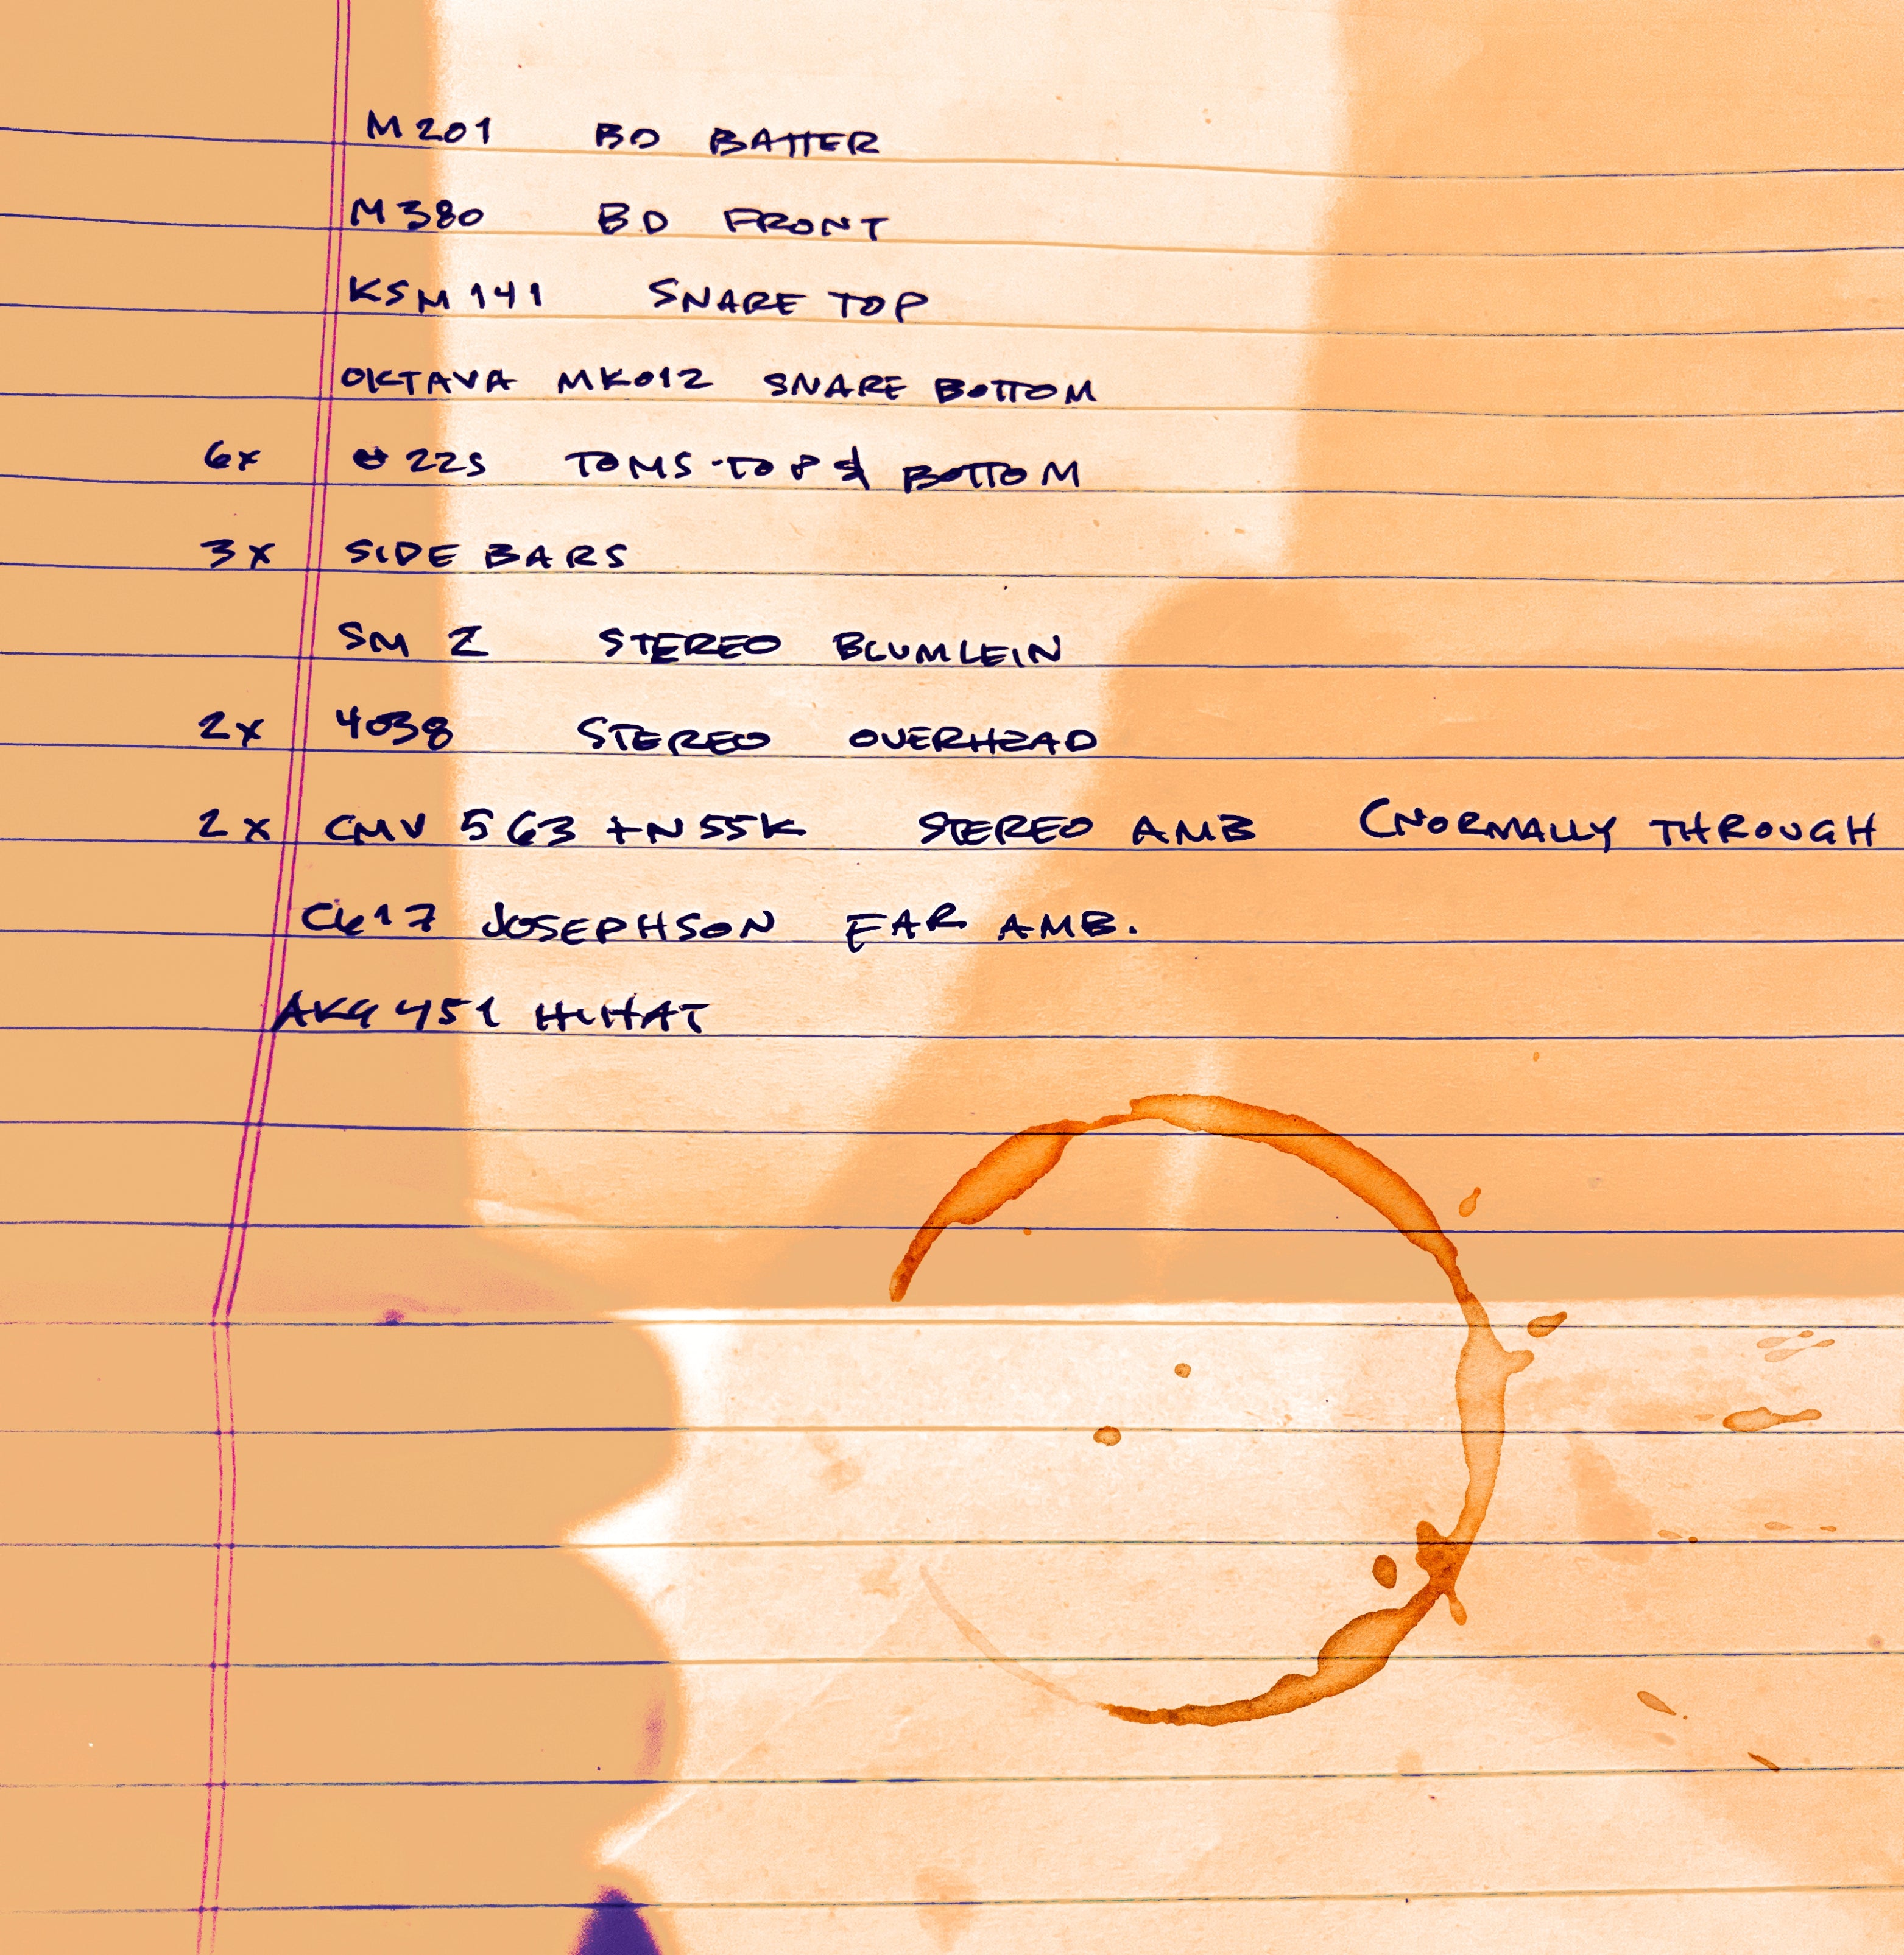 M201 BD BATTER
M380 BD FRONT
KSM141 SNARE TOP
OKTAVA MK012 SNARE BOTTOM
6x 22S TOMS·TOP & BOTTOM
3x SIDE BARS
SM 2 STEREO BLUMLEIN
2x 4038 STEREO OVERHEAD
2x CMV 563 + N55K STEREO AMB (NORMALLY THROUGH
C617 JOSEPHSON FAR AMB.
AKG 451 HIHAT